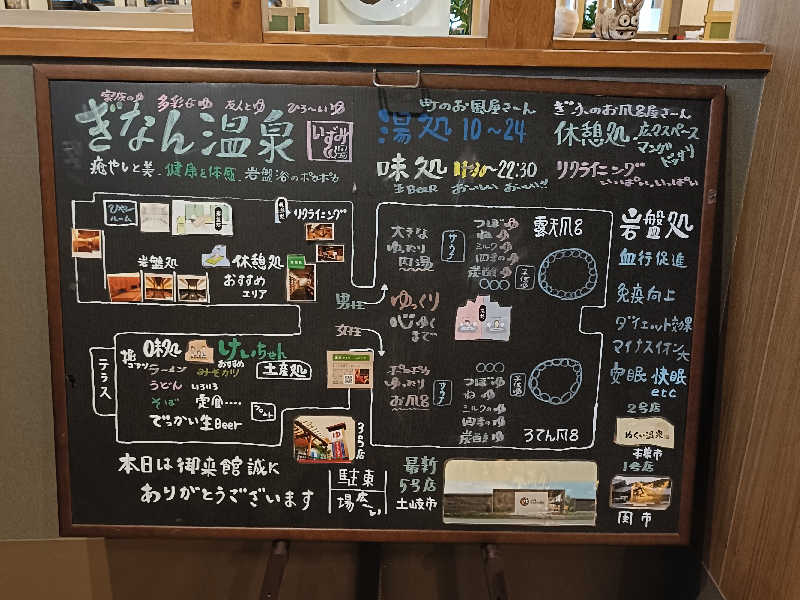 家族のゆ 多彩なゆ 友人とゆ ひろ〜いゆ
ぎなん温泉
いずみの湯
癒やしと美、健康を体感、岩盤浴のポカポカ
町のお風呂屋さーん
湯処 10~24
味処 11:30~22:30
生BEER おいしい おいしい!!
ぎふのお風呂屋さーん
休憩処 広々スペース
マンガ
ビッチリ
リクライニング
いっぱい、いっぱい
ひえひえルーム
リクライニング
岩盤処
休憩処
おすすめ
エリア
男性
女性
大きな
ゆったり
内湯
サウナ
つぼゆ
ねゆ
ミルクゆ
四季のゆ
炭酸ゆ
露天風呂
ゆっくり
心ゆく
まで
ポカポカ
ゆったり
お風呂
サウナ
つぼゆ
ねゆ
ミルクのゆ
四季のゆ
炭酸ゆ
ろてん風呂
岩盤処
血行促進
免疫向上
ダイエット効果
マイナスイオン大
安眠 快眠
etc
テラス
味処
けいちゃん
おすすめ
ラーメン
みそカツ
うどん いろいろ
そば 定食....
でっかい生Beer
土産処
フロント
3号店
2号店
ぬくい温泉
本巣市
1号店
関市
本日は御来館誠に
ありがとうございます
駐車場
東
広ーい
最新
5号店
土岐市